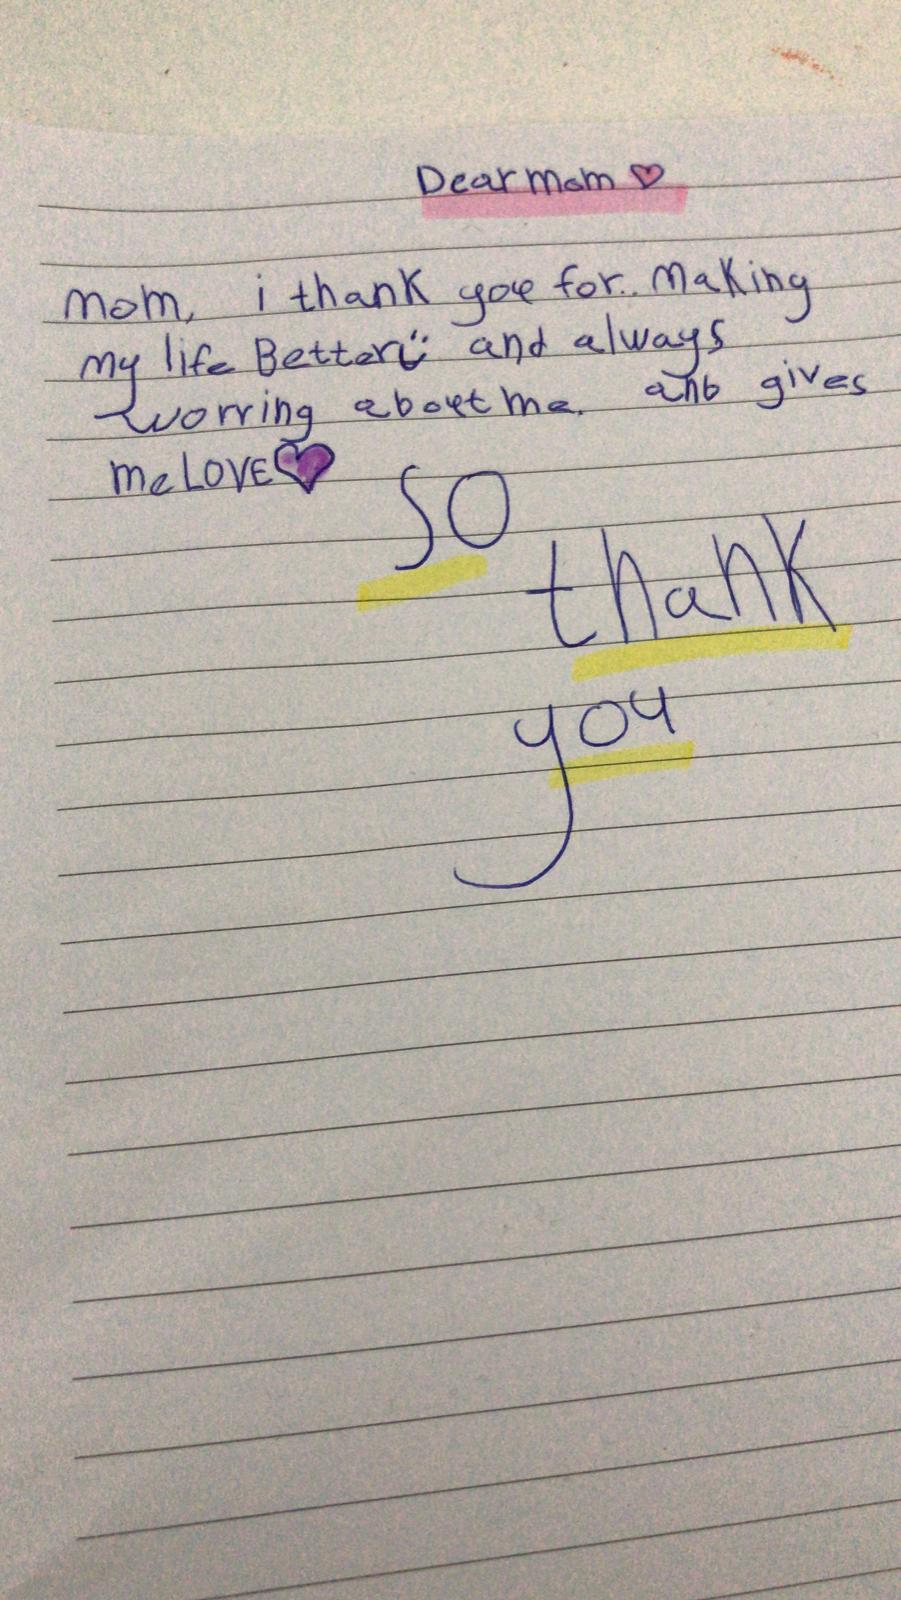 Dear mom ♡
mom, i thank you for.. making
my life Better and always
worring about me. anb gives
me LOVE
so
thank
you